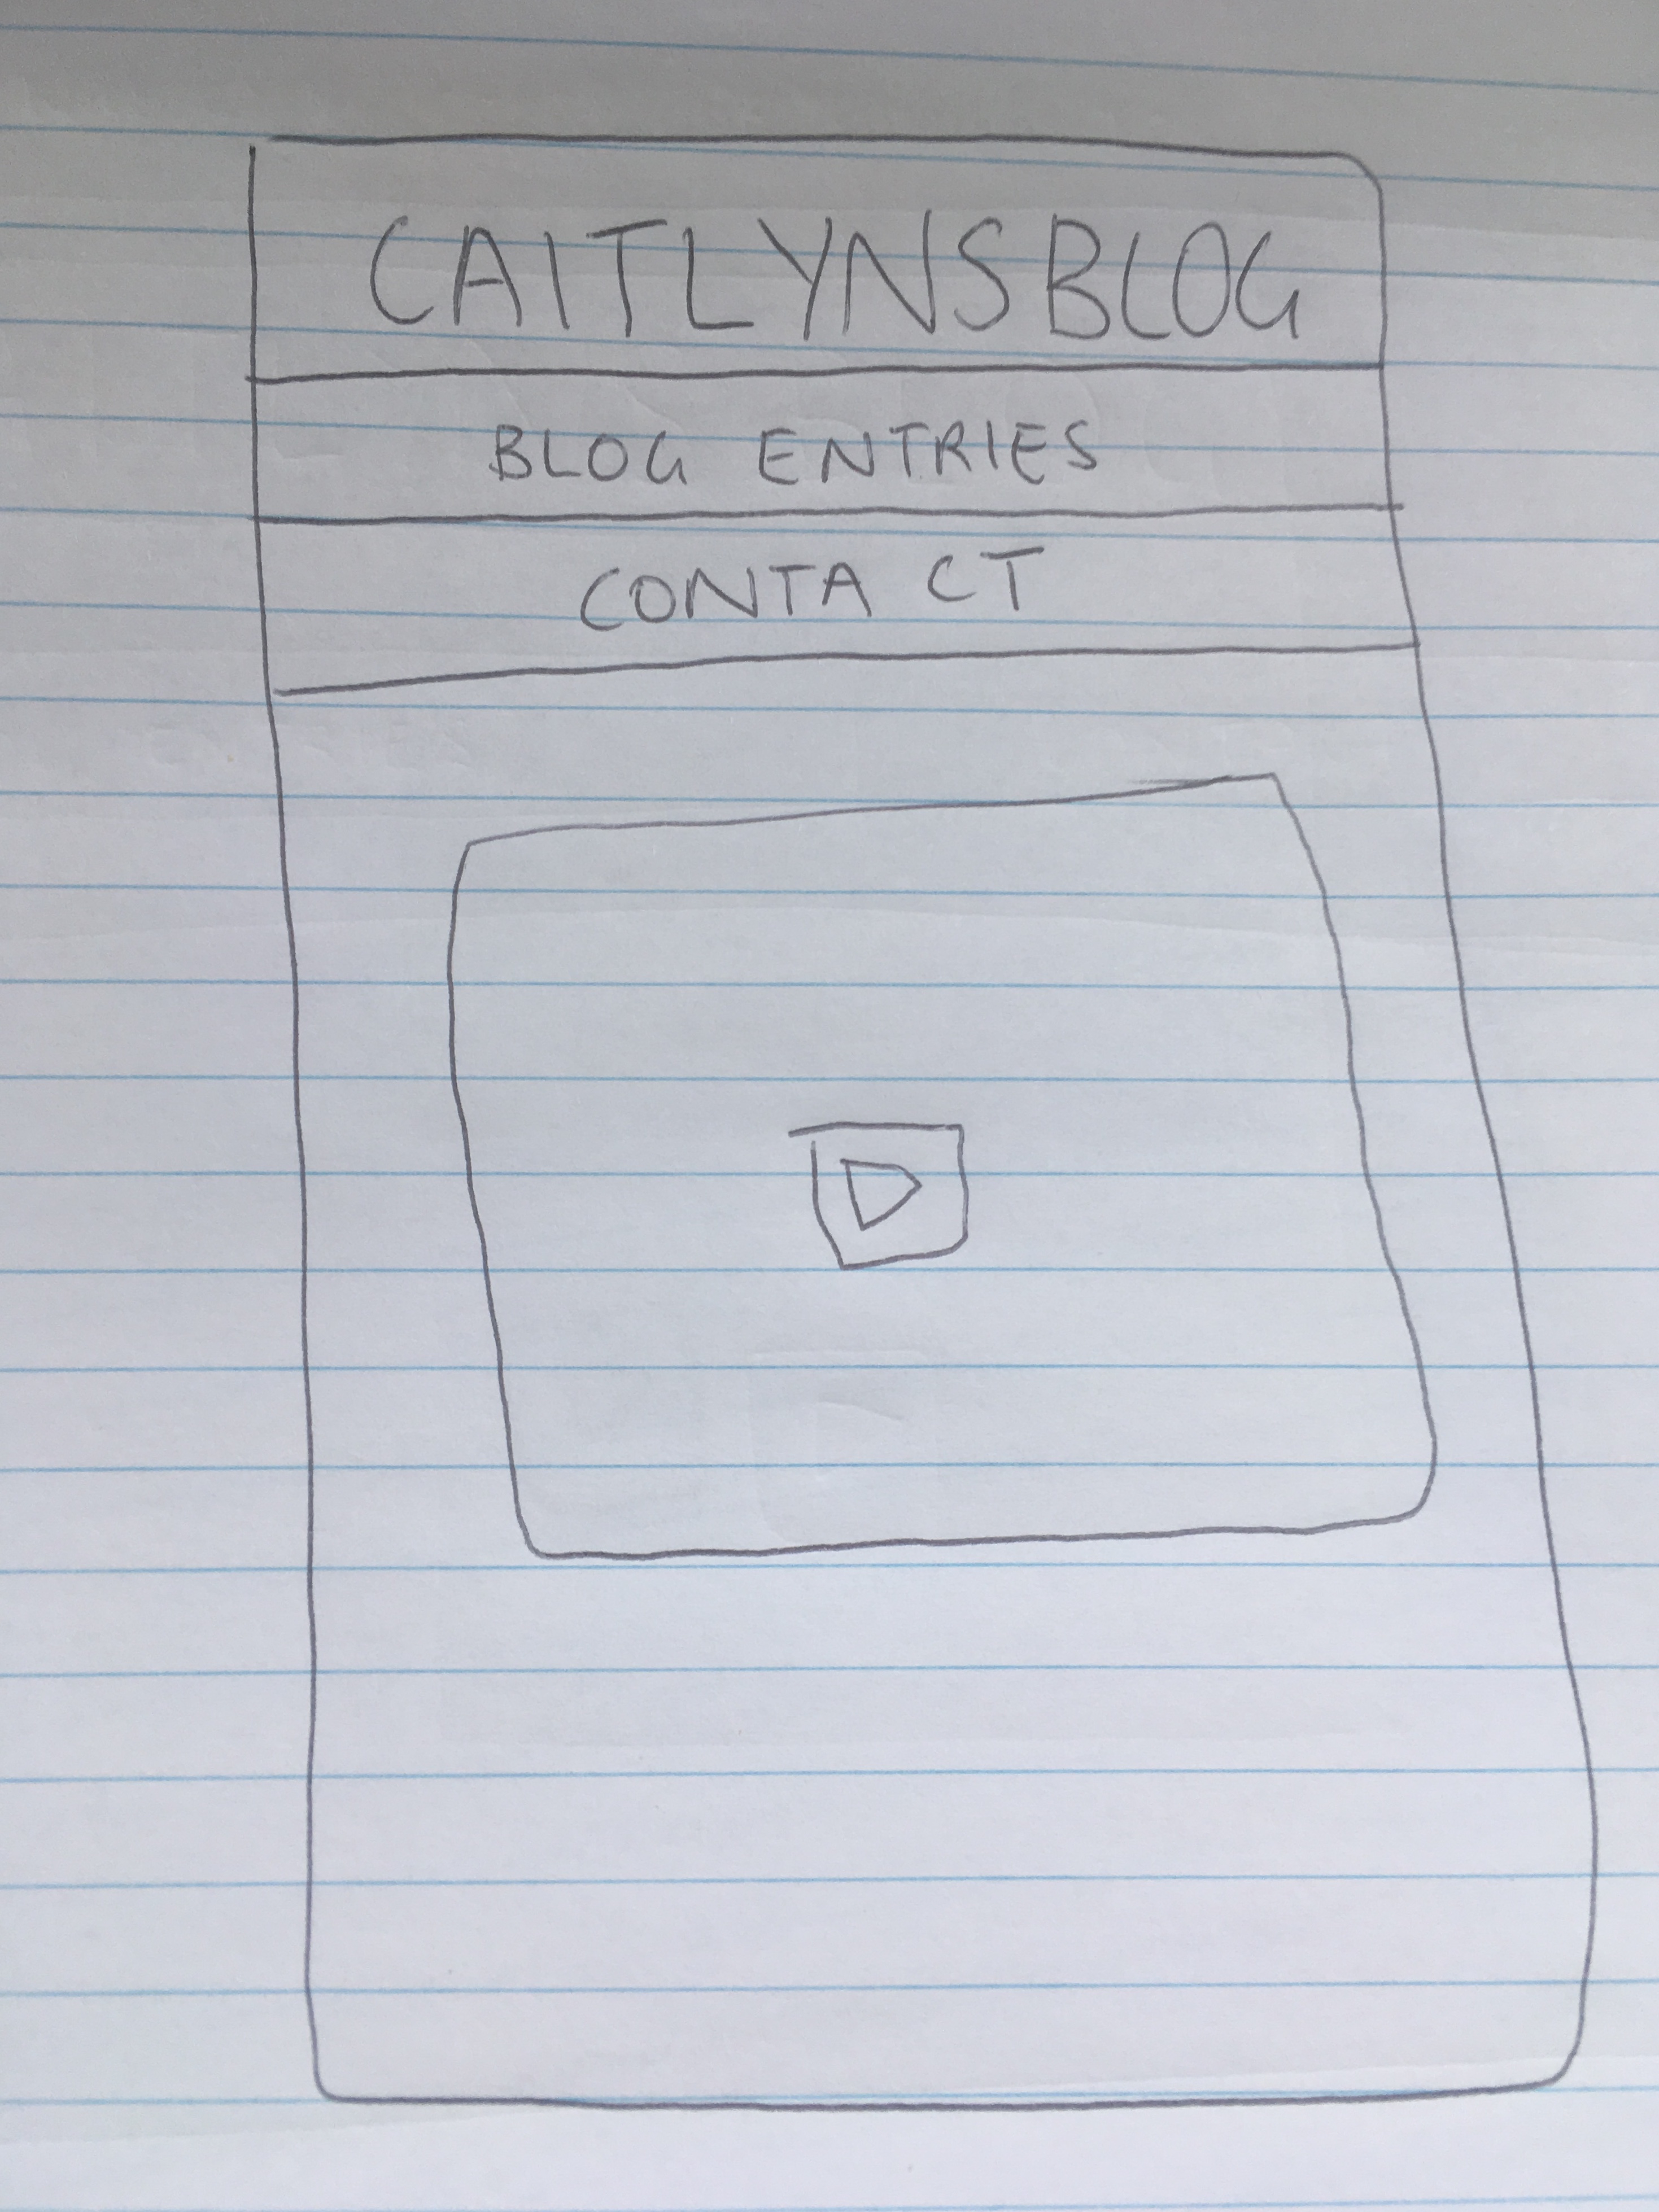 CAITLYNSBLOG
BLOG ENTRIES
CONTACT